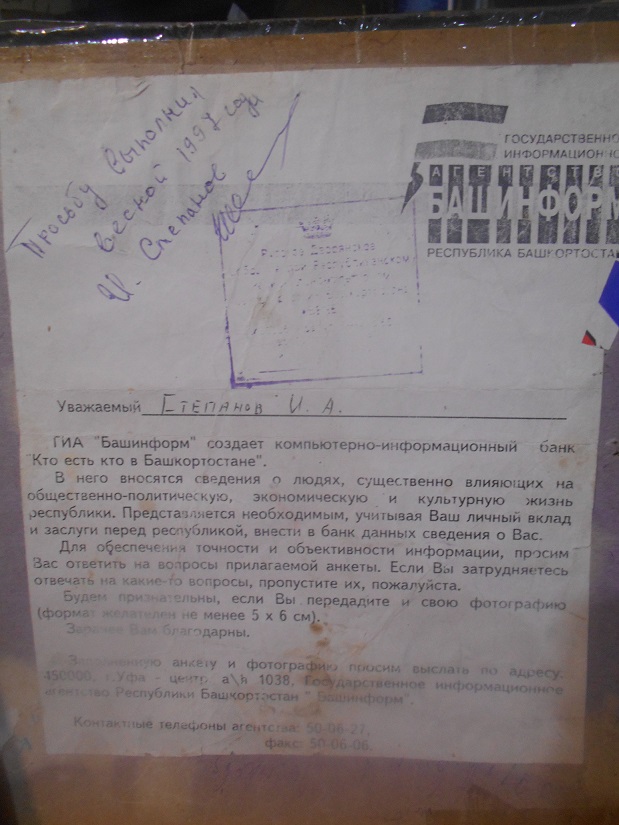 Просьбу выполнил
весной 1997 году
И. Степанов
ГОСУДАРСТВЕННО
ИНФОРМАЦИОННО
АГЕНТСТВО
БАШИНФОРМ
РЕСПУБЛИКА БАШКОРТОСТАН
Уважаемый Степанов И. А.
ГИА "Башинформ" создает компьютерно-информационный банк
"Кто есть кто в Башкортостане".
В него вносятся сведения о людях, существенно влияющих на
общественно-политическую, экономическую и культурную жизнь
республики. Представляется необходимым, учитывая Ваш личный вклад
и заслуги перед республикой, внести в банк данных сведения о Вас.
Для обеспечения точности и объективности информации, просим
Вас ответить на вопросы прилагаемой анкеты. Если Вы затрудняетесь
отвечать на какие-то вопросы, пропустите их, пожалуйста.
Будем признательны, если Вы передадите и свою фотографию
(формат желателен не менее 5 х 6 см).
Заранее Вам благодарны.
Заполненную анкету и фотографию просим выслать по адресу:
450000, г.Уфа - центр, а\h 1038, Государственное информационное
агентство Республики Башкортостан " Башинформ".
Контактные телефоны агентства: 50-06-27,
факс: 50-06-06.